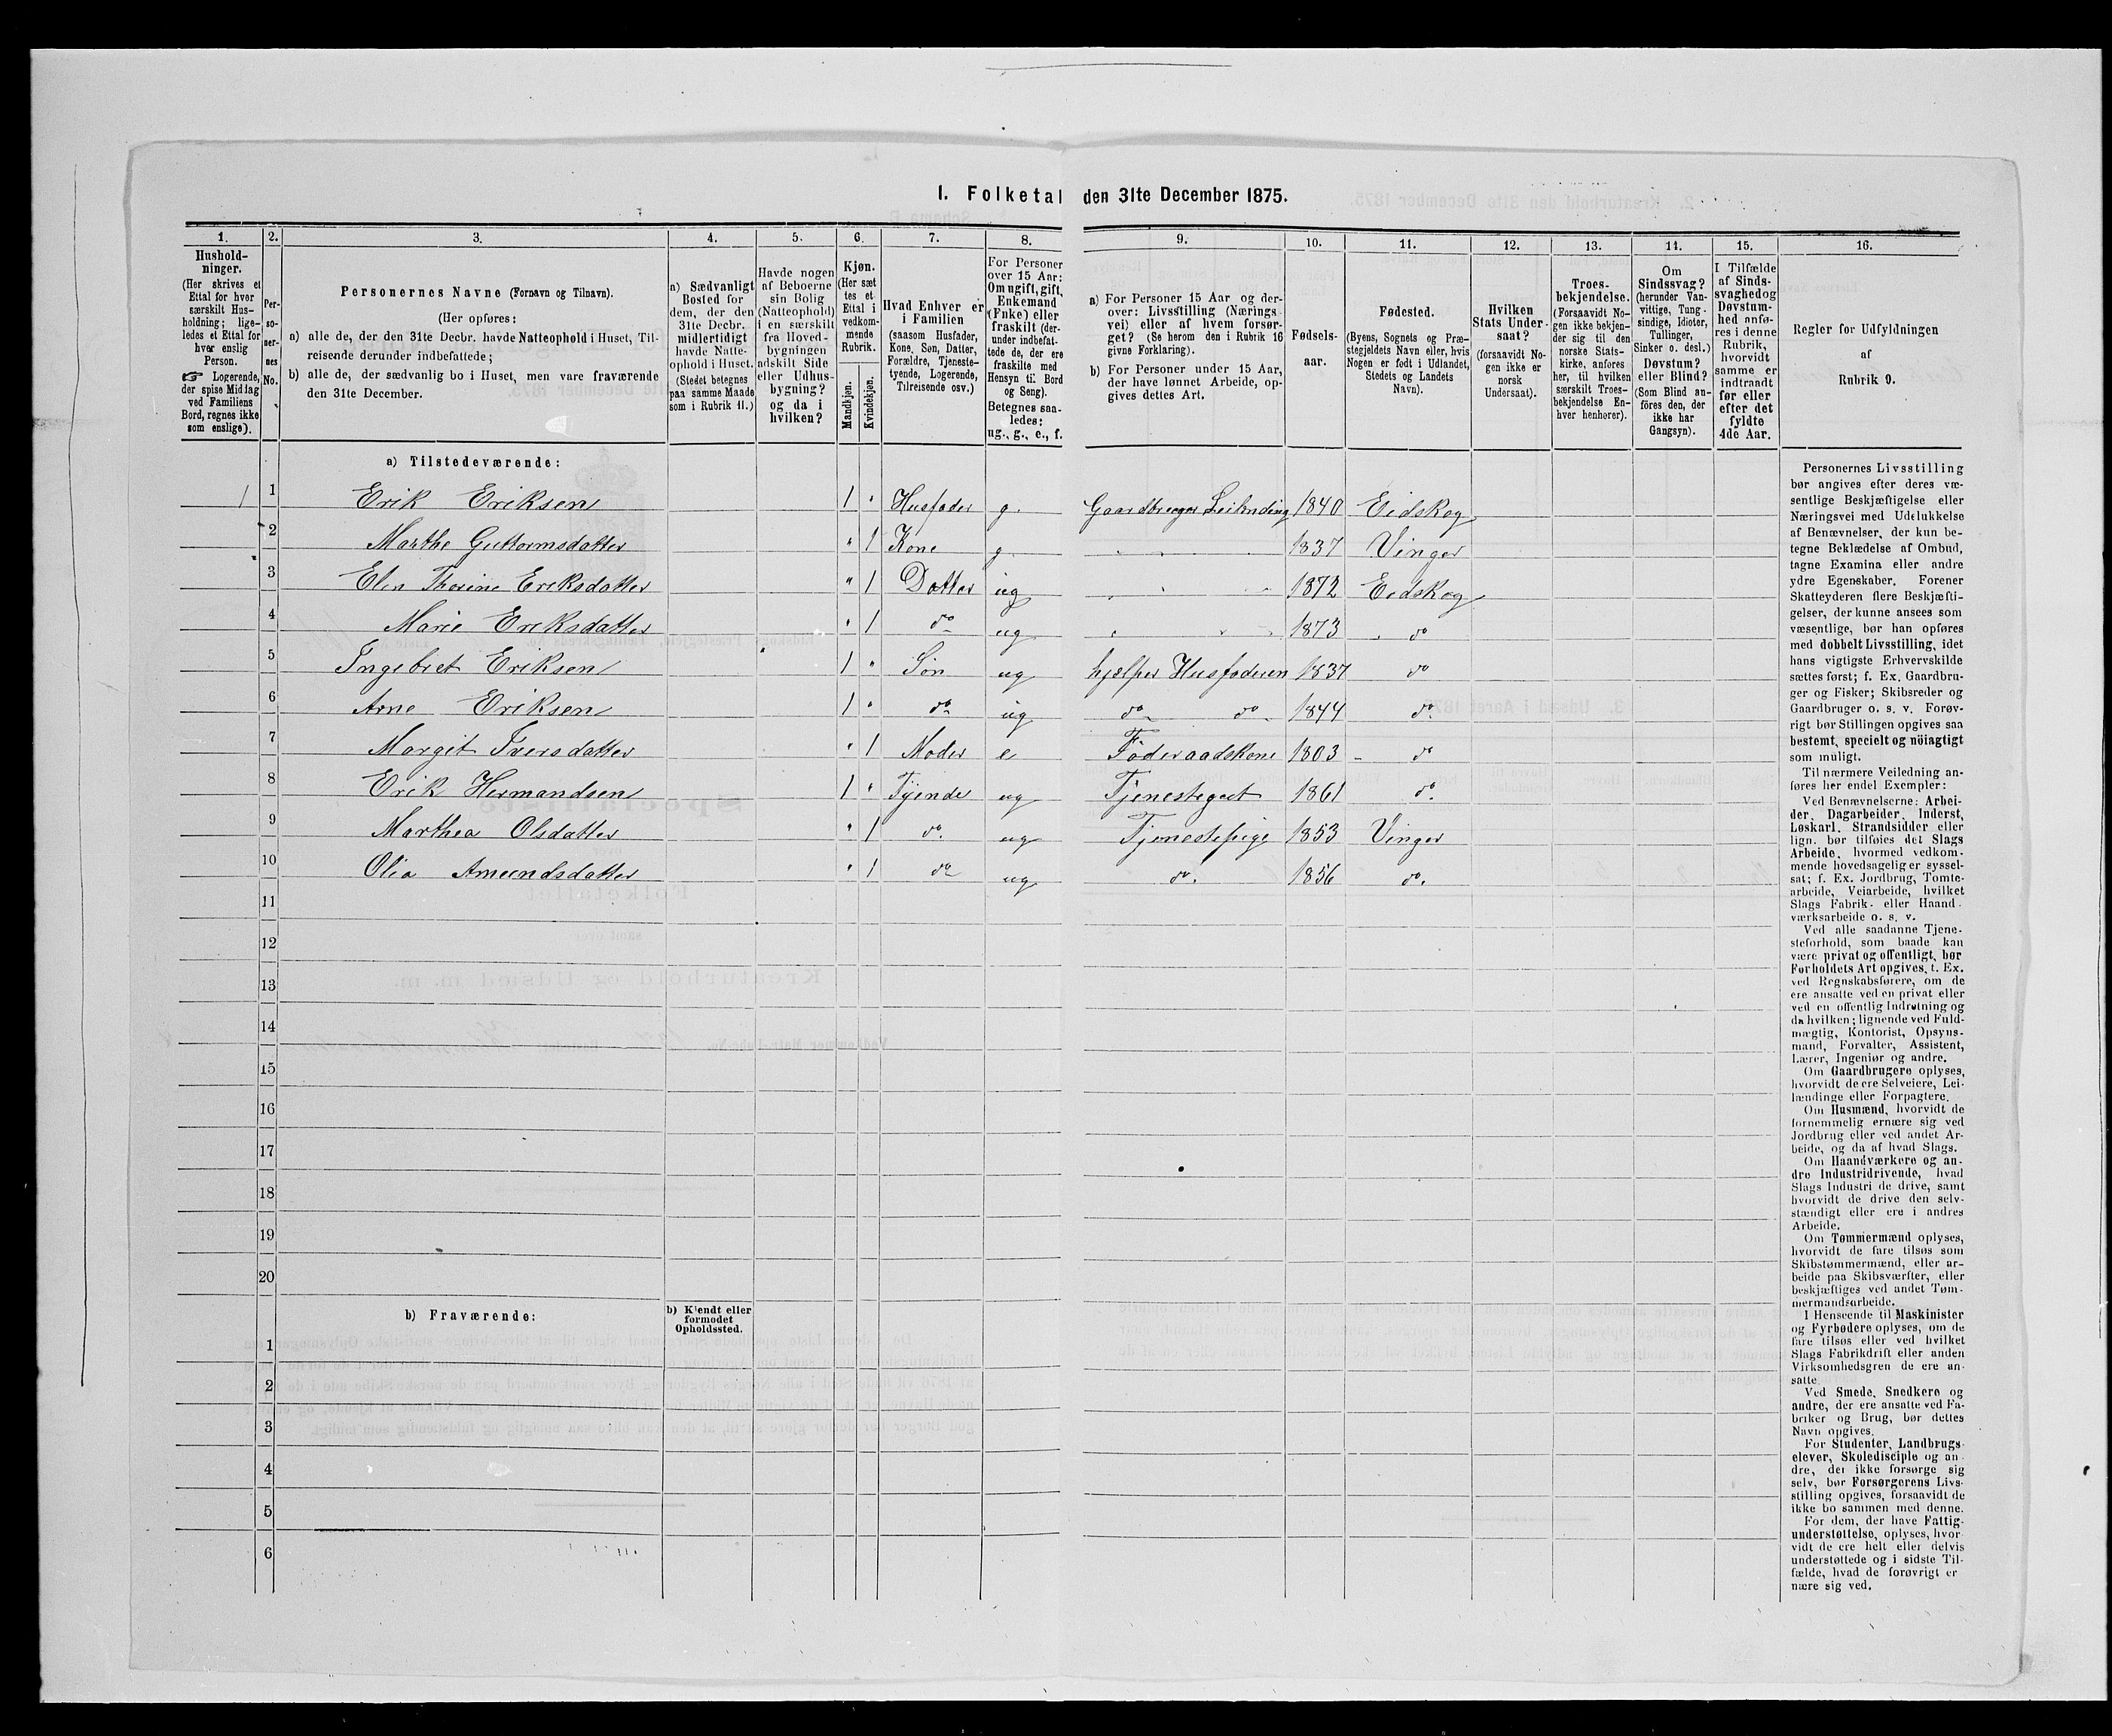 I. Folketal den 31te December 1875.
1. 2. 3. 4. 5. 6. 7. 8. 9. 10. 11. 12. 13. 14. 15. 16.
Hushold-
ninger.
(Her skrives et
Ettal for hver
særskilt Hus-
holdning; lige-
ledes et Ettal for
hver enslig
Person.
☞ Logerende,
der spise Middag
ved Familiens
Bord, regnes ikke
som enslige).
Per-
so-
ner-
nes
No.
Personernes Navne (Fornavn og Tilnavn).
(Her opføres:
a) alle de, der den 31te Decbr. havde Natteophold i Huset, Til-
reisende derunder indbefattede;
b) alle de, der sædvanlig bo i Huset, men vare fraværende
den 31te December.
a) Sædvanligt
Bosted for
dem, der den
31te Decbr.
midlertidigt
havde Natte-
ophold i Huset.
(Stedet betegnes
paa samme Maade
som i Rubrik 11.)
Havde nogen
af Beboerne
sin Bolig
(Natteophold)
i en særskilt
fra Hoved-
bygningen
adskilt Side
eller Udhus-
bygning?
og da i
hvilken?
Kjøn.
(Her sæt
tes et
Ettal i
vedkom-
mende
Rubrik.
Mandkjøn.
Kvindekjøn.
Hvad Enhver er
i Familien
(saasom Husfader,
Kone, Søn, Datter,
Forældre, Tjeneste-
tyende, Logerende,
Tilreisende osv.)
For Personer
over 15 Aar:
Om ugift, gift,
Enkemand
(Enke) eller
fraskilt (der-
under indbefat-
tede de, der ere
fraskilte med
Hensyn til Bord
og Seng).
Betegnes saa-
ledes:
ug., g., e., f.
a) For Personer 15 Aar og der-
over: Livsstilling (Nærings-
vei) eller af hvem forsør-
get? (Se herom den i Rubrik 16
givne Forklaring).
b) For Personer under 15 Aar,
der have lønnet Arbeide, op-
gives dettes Art.
Fødsels-
aar.
Fødested.
(Byens, Sognets og Præ-
stegjeldets Navn eller, hvis
Nogen er født i Udlandet,
Stedets og Landets
Navn).
Hvilken
Stats Under-
saat?
(forsaavidt No-
gen ikke er
norsk
Undersaat).
Troes-
bekjendelse.
(Forsaavidt No-
gen ikke bekjen-
der sig til den
norske Stats-
kirke, anføres
her, til hvilken
særskilt Troes-
bekjendelse En-
hver henhører).
Om
Sindssvag?
(herunder Van-
vittige, Tung-
sindige, Idioter,
Tullinger,
Sinker o. desl.)
Døvstum?
eller Blind?
(Som Blind an-
føres den, der
ikke har
Gangsyn).
I Tilfælde
af Sinds-
svaghed og
Døvstum-
hed anfø-
res i denne
Rubrik,
hvorvidt
samme er
indtraadt
før eller
efter det
fyldte
4de Aar.
Regler for Udfyldningen
af
Rubrik 9.
a) Tilstedeværende:
1 1 Erik Eriksen 1 " Husfader g. Gaardbruger Leilending 1840 Eidskog
2 Marthe Guttormsdatter " 1 Kone g. 1837 Vinger
3 Elen Thorine Eriksdatter " 1 Datter ug 1872 Eidskog
4 Marie Eriksdatter " 1 do ug 1873 do
5 Ingebret Eriksen 1 " Søn ug hjælper Husfaderen 1837 do
6 Arne Eriksen 1 " do ug do do 1844 do
7 Margit Iversdatter " 1 Moder e Føderaadskone 1803 do
8 Erik Hermandsen 1 " Tyende ug Tjenestegut 1861 do
9 Marthea Olsdatter " 1 do ug Tjenestepige 1853 Vinger
10 Olia Amundsdatter " 1 do ug do. 1856 do.
11
12
13
14
15
16
17
18
19
20
b) Fraværende:
b) Kjendt eller
formodet
Opholdssted.
1
2
3
4
5
6
Personernes Livsstilling
bør angives efter deres væ-
sentlige Beskjæftigelse eller
Næringsvei med Udelukkelse
af Benævnelser, der kun be-
tegne Beklædelse af Ombud,
tagne Examina eller andre
ydre Egenskaber. Forener
Skatteyderen flere Beskjæfti-
gelser, der kunne ansees som
væsentlige, bør han opføres
med dobbelt Livsstilling, idet
hans vigtigste Erhvervskilde
sættes først; f. Ex. Gaardbru-
ger og Fisker; Skibsreder og
Gaardbruger o. s. v. Forøv-
rigt bør Stillingen opgives saa
bestemt, specielt og nöiagtigt
som muligt.
Til nærmere Veiledning an-
føres her endel Exempler:
Ved Benævnelserne: Arbei-
der, Dagarbeider, Inderst,
Løskarl, Strandsidder eller
lign. bør tilføies det Slags
Arbeide, hvormed vedkom-
mende hovedsagelig er syssel-
sat; f. Ex. Jordbrug, Tomte-
arbeide, Veiarbeide, hvilket
Slags Fabrik- eller Haand-
værksarbeide o. s. v.
Ved alle saadanne Tjene-
steforhold, som baade kan
være privat og offentligt, bør
Forholdets Art opgives, t. Ex.
ved Regnskabsførere, om de
ere ansatte ved en privat eller
ved en offentlig Indretning og
da hvilken; lignende ved Fuld-
mægtig, Kontorist, Opsyns-
mand, Forvalter, Assistent,
Lærer, Ingeniør og andre.
Om Gaardbrugere oplyses,
hvorvidt de ere Selveiere, Lei-
lændinge eller Forpagtere.
Om Husmænd, hvorvidt de
fornemmelig ernære sig ved
Jordbrug eller ved andet Ar-
beide, og da af hvad Slags.
Om Haandværkere og an-
dre Industridrivende, hvad
Slags Industri de drive, samt
hvorvidt de drive den selv-
stændigt eller ere i andres
Arbeide.
Om Tømmermænd oplyses,
hvorvidt de fare tilsøs som
Skibstømmermænd, eller ar-
beide paa Skibsværfter, eller
beskjæftiges ved andet Tøm-
mermandsarbeide.
I Henseende til Maskinister
og Fyrbødere oplyses, om de
fare tilsøs eller ved hvilket
Slags Fabrikdrift eller anden
Virksomhedsgren de ere an-
satte.
Ved Smede, Snedkere og
andre, der ere ansatte ved Fa-
briker og Brug, bør dettes
Navn opgives.
For Studenter, Landbrugs-
elever, Skoledisciple og an-
dre, der ikke forsørge sig
selv, bør Forsørgerens Livs-
stilling opgives, forsaavidt de
ikke bo sammen med denne.
For dem, der have Fattig-
understøttelse, oplyses, hvor-
vidt de ere helt eller delvis
understøttede og i sidste Til-
fælde, hvad de forøvrigt er-
nære sig ved.